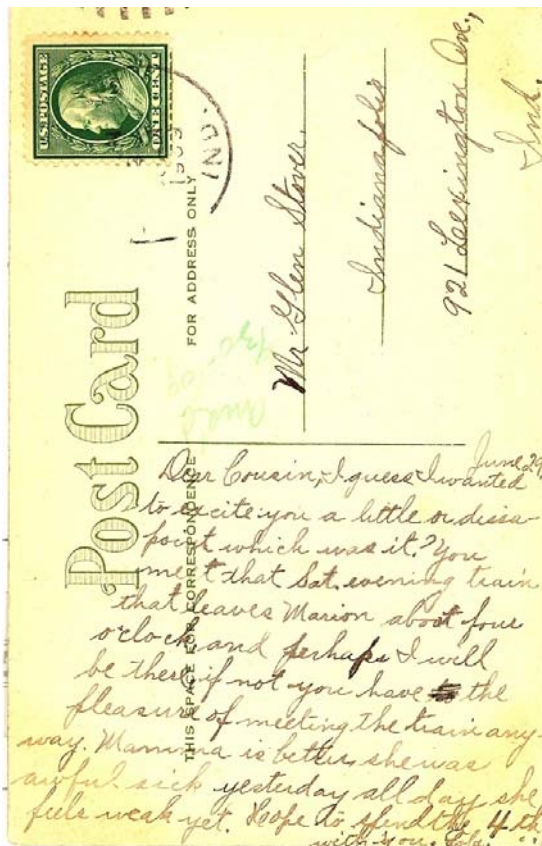 U.S. POSTAGE
ONE CENT
1909
IND.
Post Card
FOR ADDRESS ONLY
Mr Glen Stover,
Indianapolis
921 Lexington Ave.,
Ind.
THIS SPACE FOR CORRESPONDENCE
June 29,
Dear Cousin, I guess I wanted
to excite you a little or dissa-
point which was it? You
meet that Sat. evening train
that leaves Marion about four
o'clock and perhaps I will
be there if not you have the
pleasure of meeting the train any-
way. Mamma is better she was
awful sick yesterday all day she
feels weak yet. Hope to spend the 4th
with you.